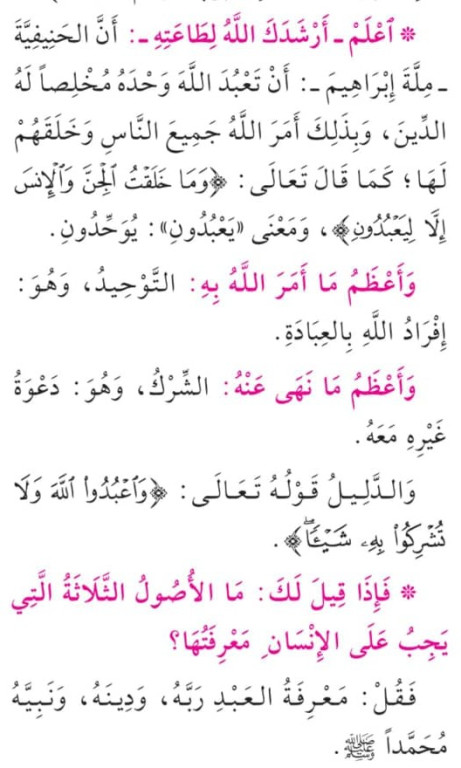 * ٱعْلَمْ ـ أَرْشَدَكَ اللَّهُ لِطَاعَتِهِ ـ: أَنَّ الحَنِيفِيَّةَ
ـ مِلَّةَ إِبْرَاهِيمَ ـ: أَنْ تَعْبُدَ اللَّهَ وَحْدَهُ مُخْلِصاً لَهُ
الدِّينَ، وَبِذَلِكَ أَمَرَ اللَّهُ جَمِيعَ النَّاسِ وَخَلَقَهُمْ
لَهَا؛ كَمَا قَالَ تَعَالَى: ﴿وَمَا خَلَقْتُ ٱلْجِنَّ وَٱلْإِنسَ
إِلَّا لِيَعْبُدُونِ﴾، وَمَعْنَى «يَعْبُدُونِ»: يُوَحِّدُونِ.
وَأَعْظَمُ مَا أَمَرَ اللَّهُ بِهِ: التَّوْحِيدُ، وَهُوَ:
إِفْرَادُ اللَّهِ بِالعِبَادَةِ.
وَأَعْظَمُ مَا نَهَى عَنْهُ: الشِّرْكُ، وَهُوَ: دَعْوَةُ
غَيْرِهِ مَعَهُ.
وَالدَّلِيلُ قَوْلُهُ تَعَالَى: ﴿وَٱعْبُدُوا۟ ٱللَّهَ وَلَا
تُشْرِكُوا۟ بِهِۦ شَيْـًٔاۖ﴾.
* فَإِذَا قِيلَ لَكَ: مَا الأُصُولُ الثَّلَاثَةُ الَّتِي
يَجِبُ عَلَى الإِنْسَانِ مَعْرِفَتُهَا؟
فَقُلْ: مَعْرِفَةُ العَبْدِ رَبَّهُ، وَدِينَهُ، وَنَبِيَّهُ
مُحَمَّداً ﷺ.